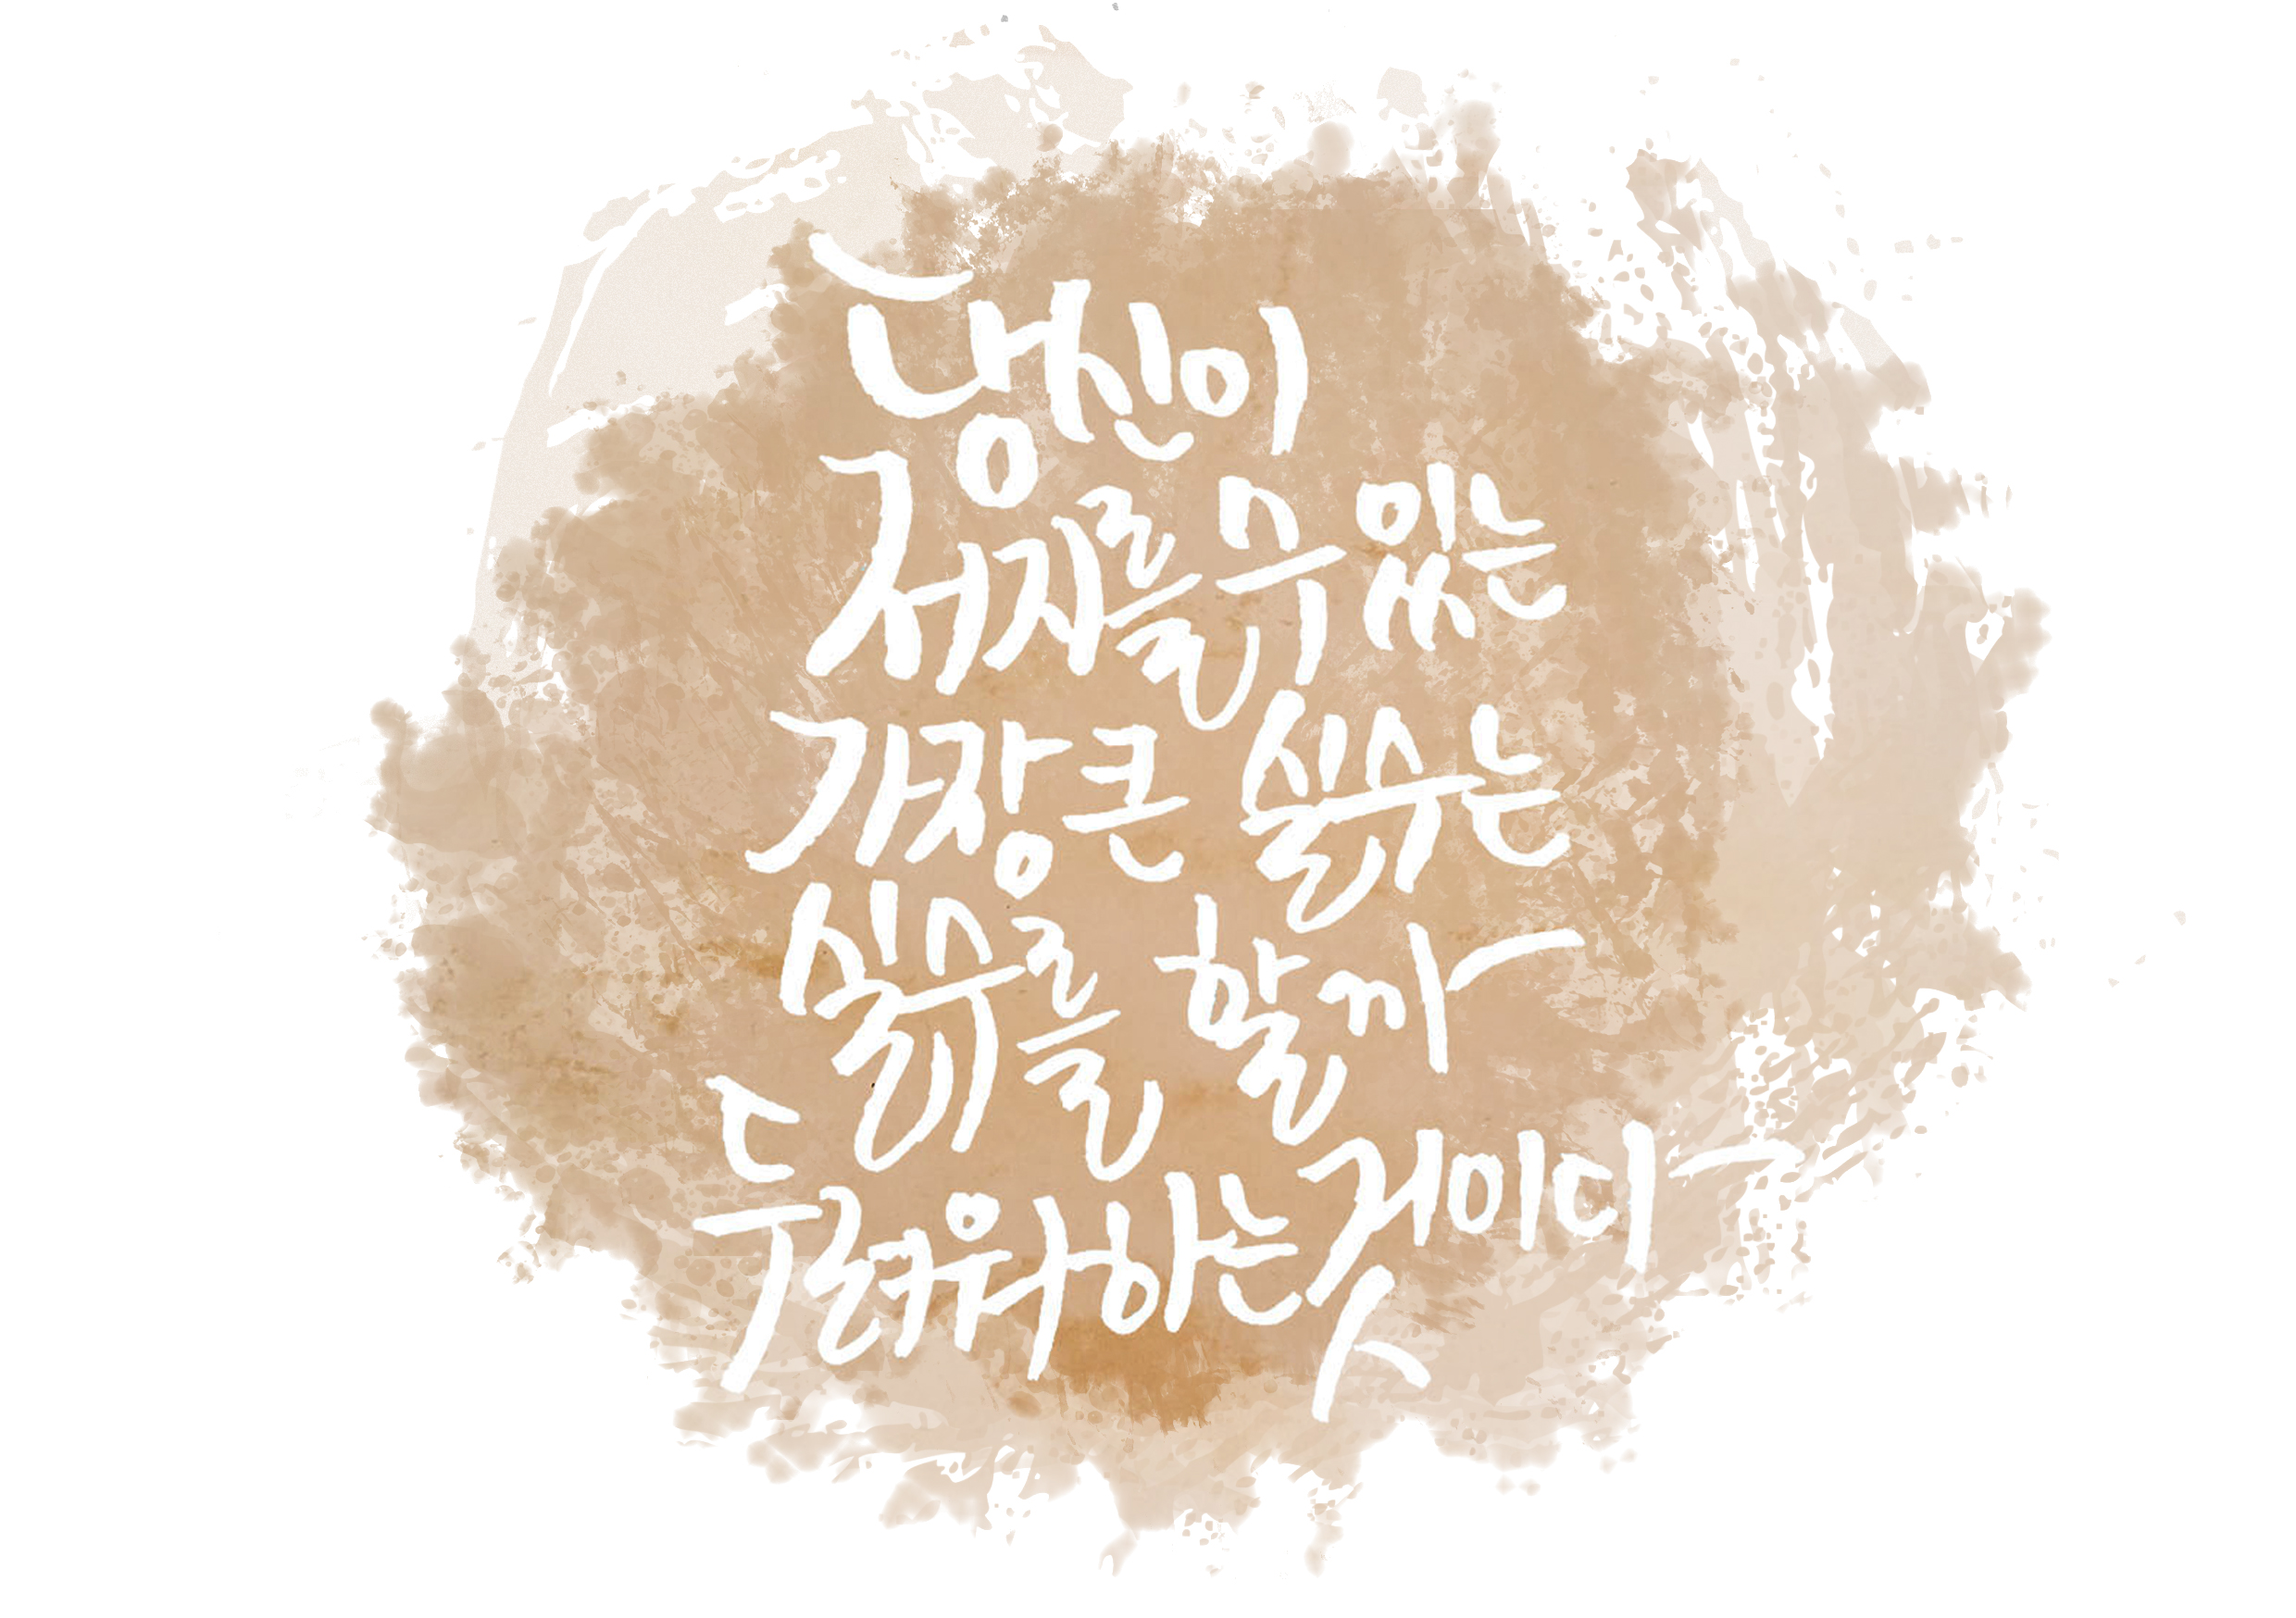 당신이
저지를 수 있는
가장 큰 실수는
실수를 할까
두려워하는 것이다